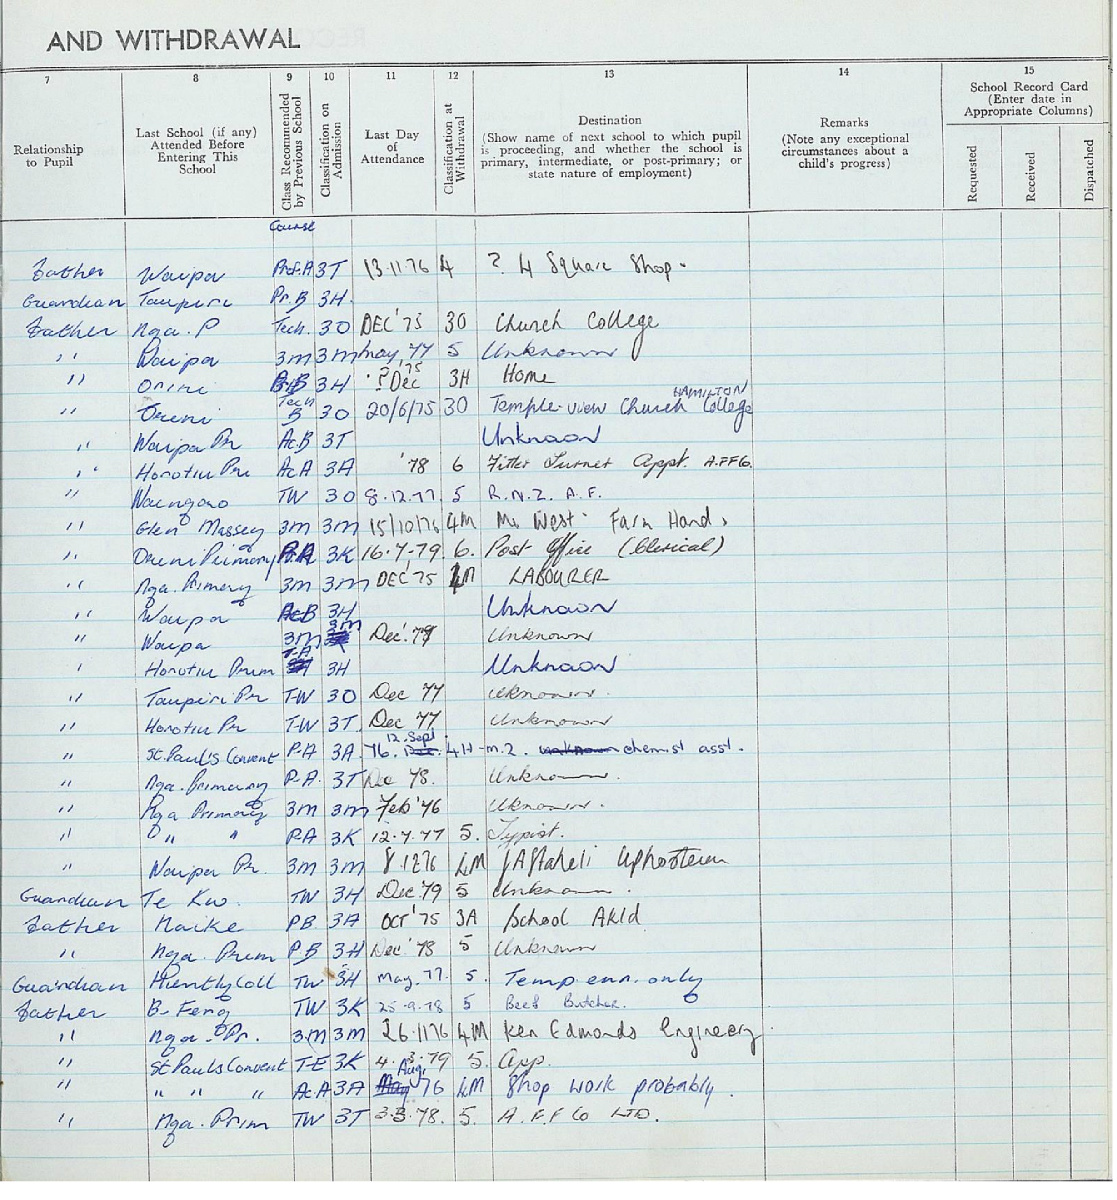 AND WITHDRAWAL
7 8 9 10 11 12 13 14 15
Relationship to Pupil
Last School (if any) Attended Before Entering This School
Class Recommended by Previous School
Classification on Admission
Last Day of Attendance
Classification at Withdrawal
Destination
(Show name of next school to which pupil is proceeding, and whether the school is primary, intermediate, or post-primary; or state nature of employment)
Remarks
(Note any exceptional circumstances about a child's progress)
School Record Card
(Enter date in Appropriate Columns)
Requested
Received
Dispatched
Course
Father Waipa Prof.A 3T 13.11.76 4 ? 4 Square Shop.
Guardian Taupiri Pr.B 3H.
Father Nga. P Tech. 3O DEC '75 3O Church College
" Waipa 3m 3m may, 77 5 Unknown
" Orini 3H ? Dec '75 3H Home
" Oreni Tech B 3O 20/6/75 3O Temple-view Church College HAMILTON
" Waipa Pr Ac.B 3T Unknown
" Horotiu Pri Ac A 3A '78 6 Fitter Turner Appt. A.F.F.Co.
" Waingaro TW 3O 8.12.77 5 R.N.Z.A.F.
" Glen Massey 3m 3m 15/10/76 4M Mr West. Farm Hand.
" Oreni Primary 3K 16.7.79 6. Post Office (Clerical)
" Nga. Primary 3m 3m DEC '75 4M LABOURER
" Waipa AcB 3H Unknown
" Waipa 3m 3m Dec. '79 Unknown
" Horotiu Prim T-A 3H Unknown
" Taupiri Pr T-W 3O Dec 77 Uknown.
" Horotiu Pr T-W 3T. Dec 77 Unknown
" St. Paul's Convent P-A 3A 76. 12. Sept 4H - m.2. unknown chemist asst.
" Nga. Primary P.A. 3T Dec 78. Unknown.
" Nga Primary 3m 3m Feb '76 Uknown.
" " " P.A 3K 12.7.77 5. Typist.
" Waipa Pr. 3m 3m 8.12.76 4M
Guardian Te Kow. TW 3H Dec '79 5 Unknown.
Father Naike PB 3A OCT '75 3A School Akld
" Nga. Prim P.B 3H Dec '78 5 Unknown
Guardian Huntly Coll TW 3H May. 77. 5. Temp enr. only
Father B. Ferry TW 3K 25.9.78 5 Beef Butcher.
" Nga. Pr. 3.m 3m 26.11.76 4M Ken Edmonds Engineery
" St Pauls Convent T-E 3K 4.3.79 5. App.
" " " " Ac A 3A May Aug. 76 4M Shop work probably.
" Nga. Prim TW 3T 3.3.78. 5. A.F.F Co LTD.